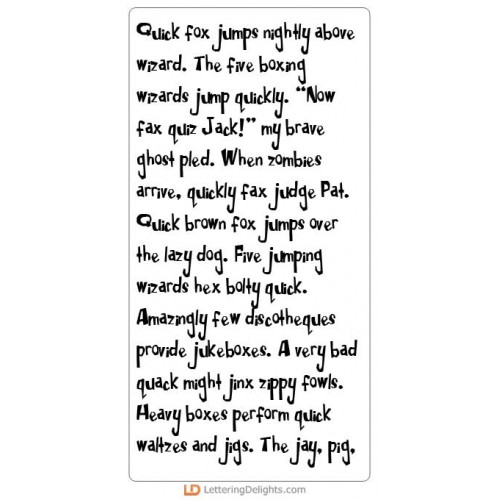 Quick fox jumps nightly above
wizard. The five boxing
wizards jump quickly. “Now
fax quiz Jack!” my brave
ghost pled. When zombies
arrive, quickly fax judge Pat.
Quick brown fox jumps over
the lazy dog. Five jumping
wizards hex bolty quick.
Amazingly few discotheques
provide jukeboxes. A very bad
quack might jinx zippy fowls.
Heavy boxes perform quick
waltzes and jigs. The jay, pig,
LD LetteringDelights.com